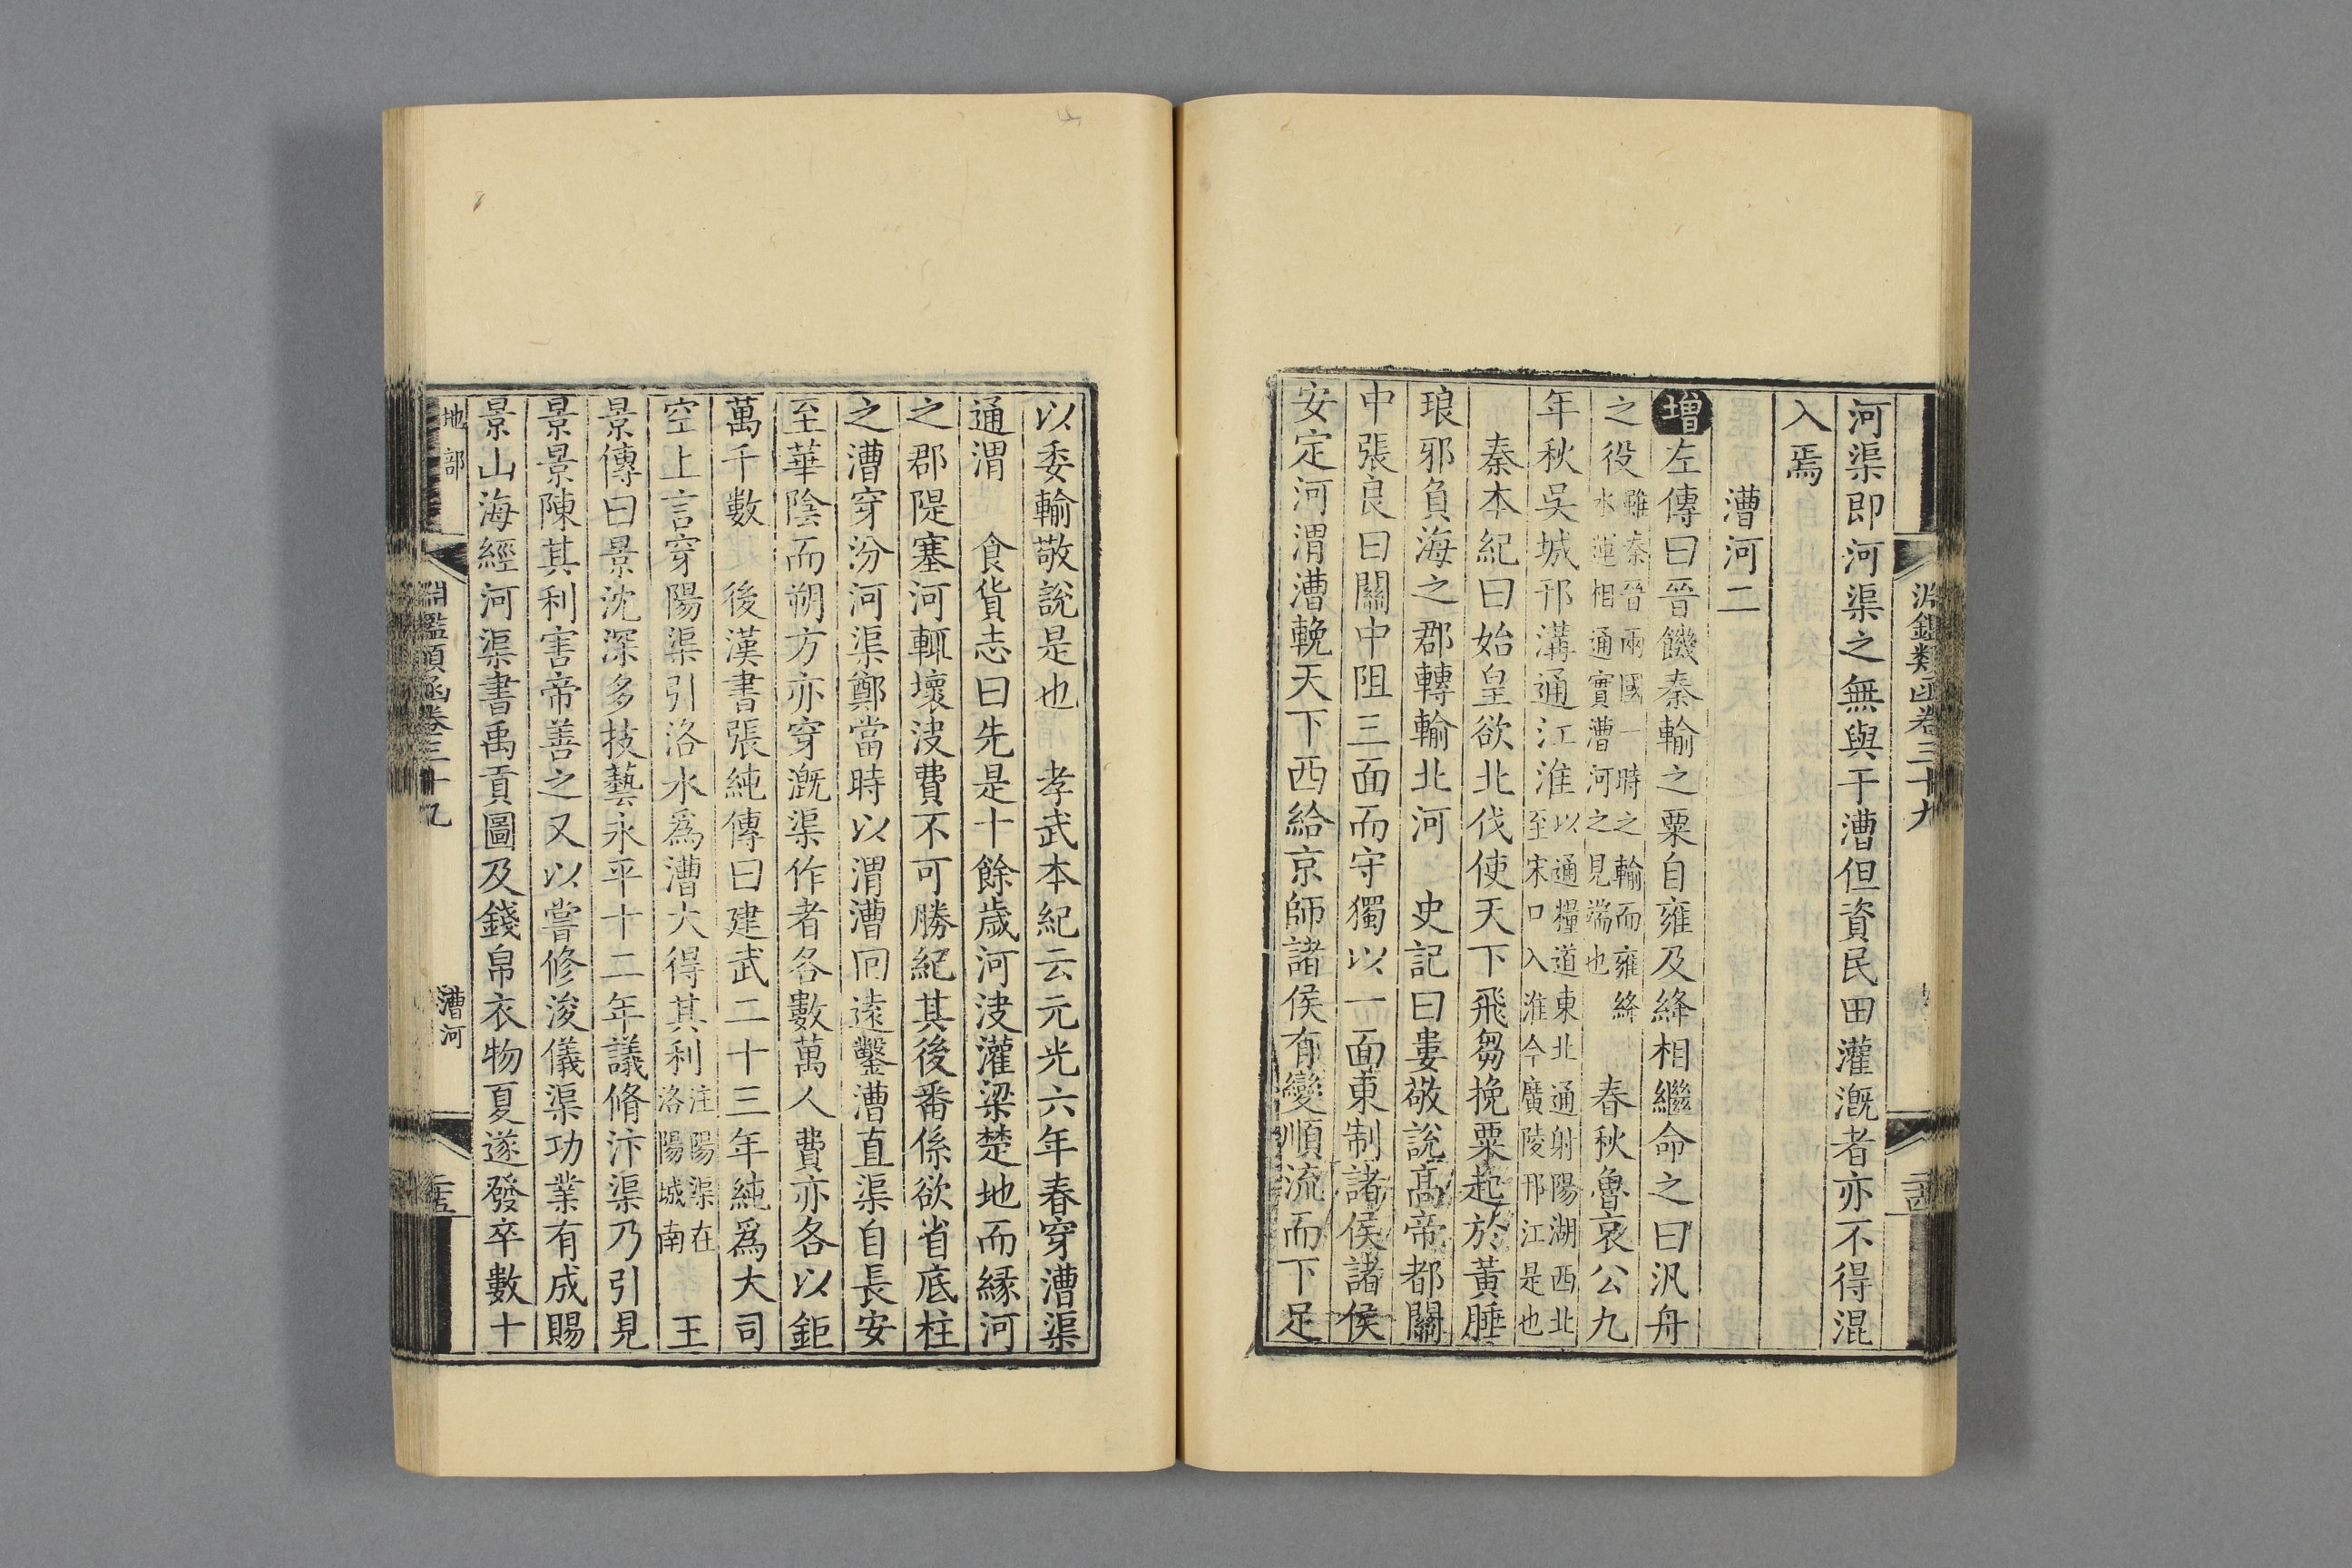 淵鑑類函卷三十九
二十四
河渠即河渠之無與于漕但資民田灌漑者亦不得混
入焉
漕河二
增左傳曰晉饑秦輸之粟自雍及絳相繼命之曰汎舟
之役雖秦晉兩國一時之輸而雍絳水運相通實漕河之見端也 春秋魯哀公九
年秋吳城邗溝通江淮以通糧道東北通射陽湖西北至宋口入淮今廣陵邗江是也
秦本紀曰始皇欲北伐使天下飛芻挽粟起於黃腄
琅邪負海之郡轉輸北河 史記曰婁敬說高帝都關
中張良曰關中阻三面而守獨以一面東制諸侯諸侯
安定河渭漕輓天下西給京師諸侯有變順流而下足
以委輸敬說是也 孝武本紀云元光六年春穿漕渠
通渭 食貨志曰先是十餘歲河決灌梁楚地而緣河
之郡隄塞河輒壞決費不可勝紀其後番係欲省底柱
之漕穿汾河渠鄭當時以渭漕回遠鑿漕直渠自長安
至華陰而朔方亦穿漑渠作者各數萬人費亦各以鉅
萬千數 後漢書張純傳曰建武二十三年純爲大司
空上言穿陽渠引洛水爲漕大得其利注陽渠在洛陽城南 王
景傳曰景沈深多技藝永平十二年議脩汴渠乃引見
景景陳其利害帝善之又以嘗修浚儀渠功業有成賜
景山海經河渠書禹貢圖及錢帛衣物夏遂發卒數十
地部
淵鑑類函卷三十九
漕河
二十五